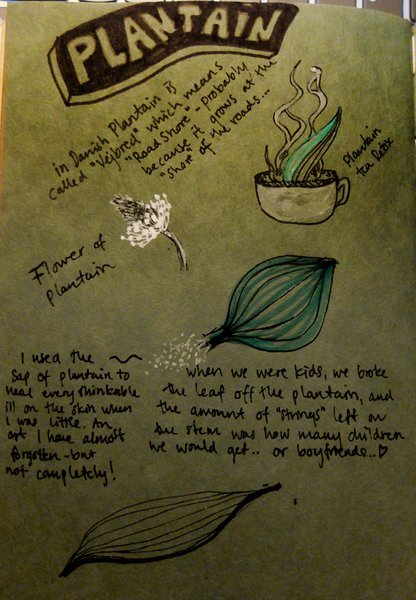 PLANTAIN
in Danish Plantain is
called "Vejbred" which means
"Road Shore" - probably
because it grows at the
"shore" of the roads...
Plantain
tea Detox
Flower of
Plantain
I used the
Sap of plantain to
heal every thinkable
ill on the skin when
I was little. An
art I have almost
forgotten - but
not completely!
when we were kids, we broke
the leaf off the plantain, and
the amount of "strings" left on
the stem was how many children
we would get.. or boyfriends..♡